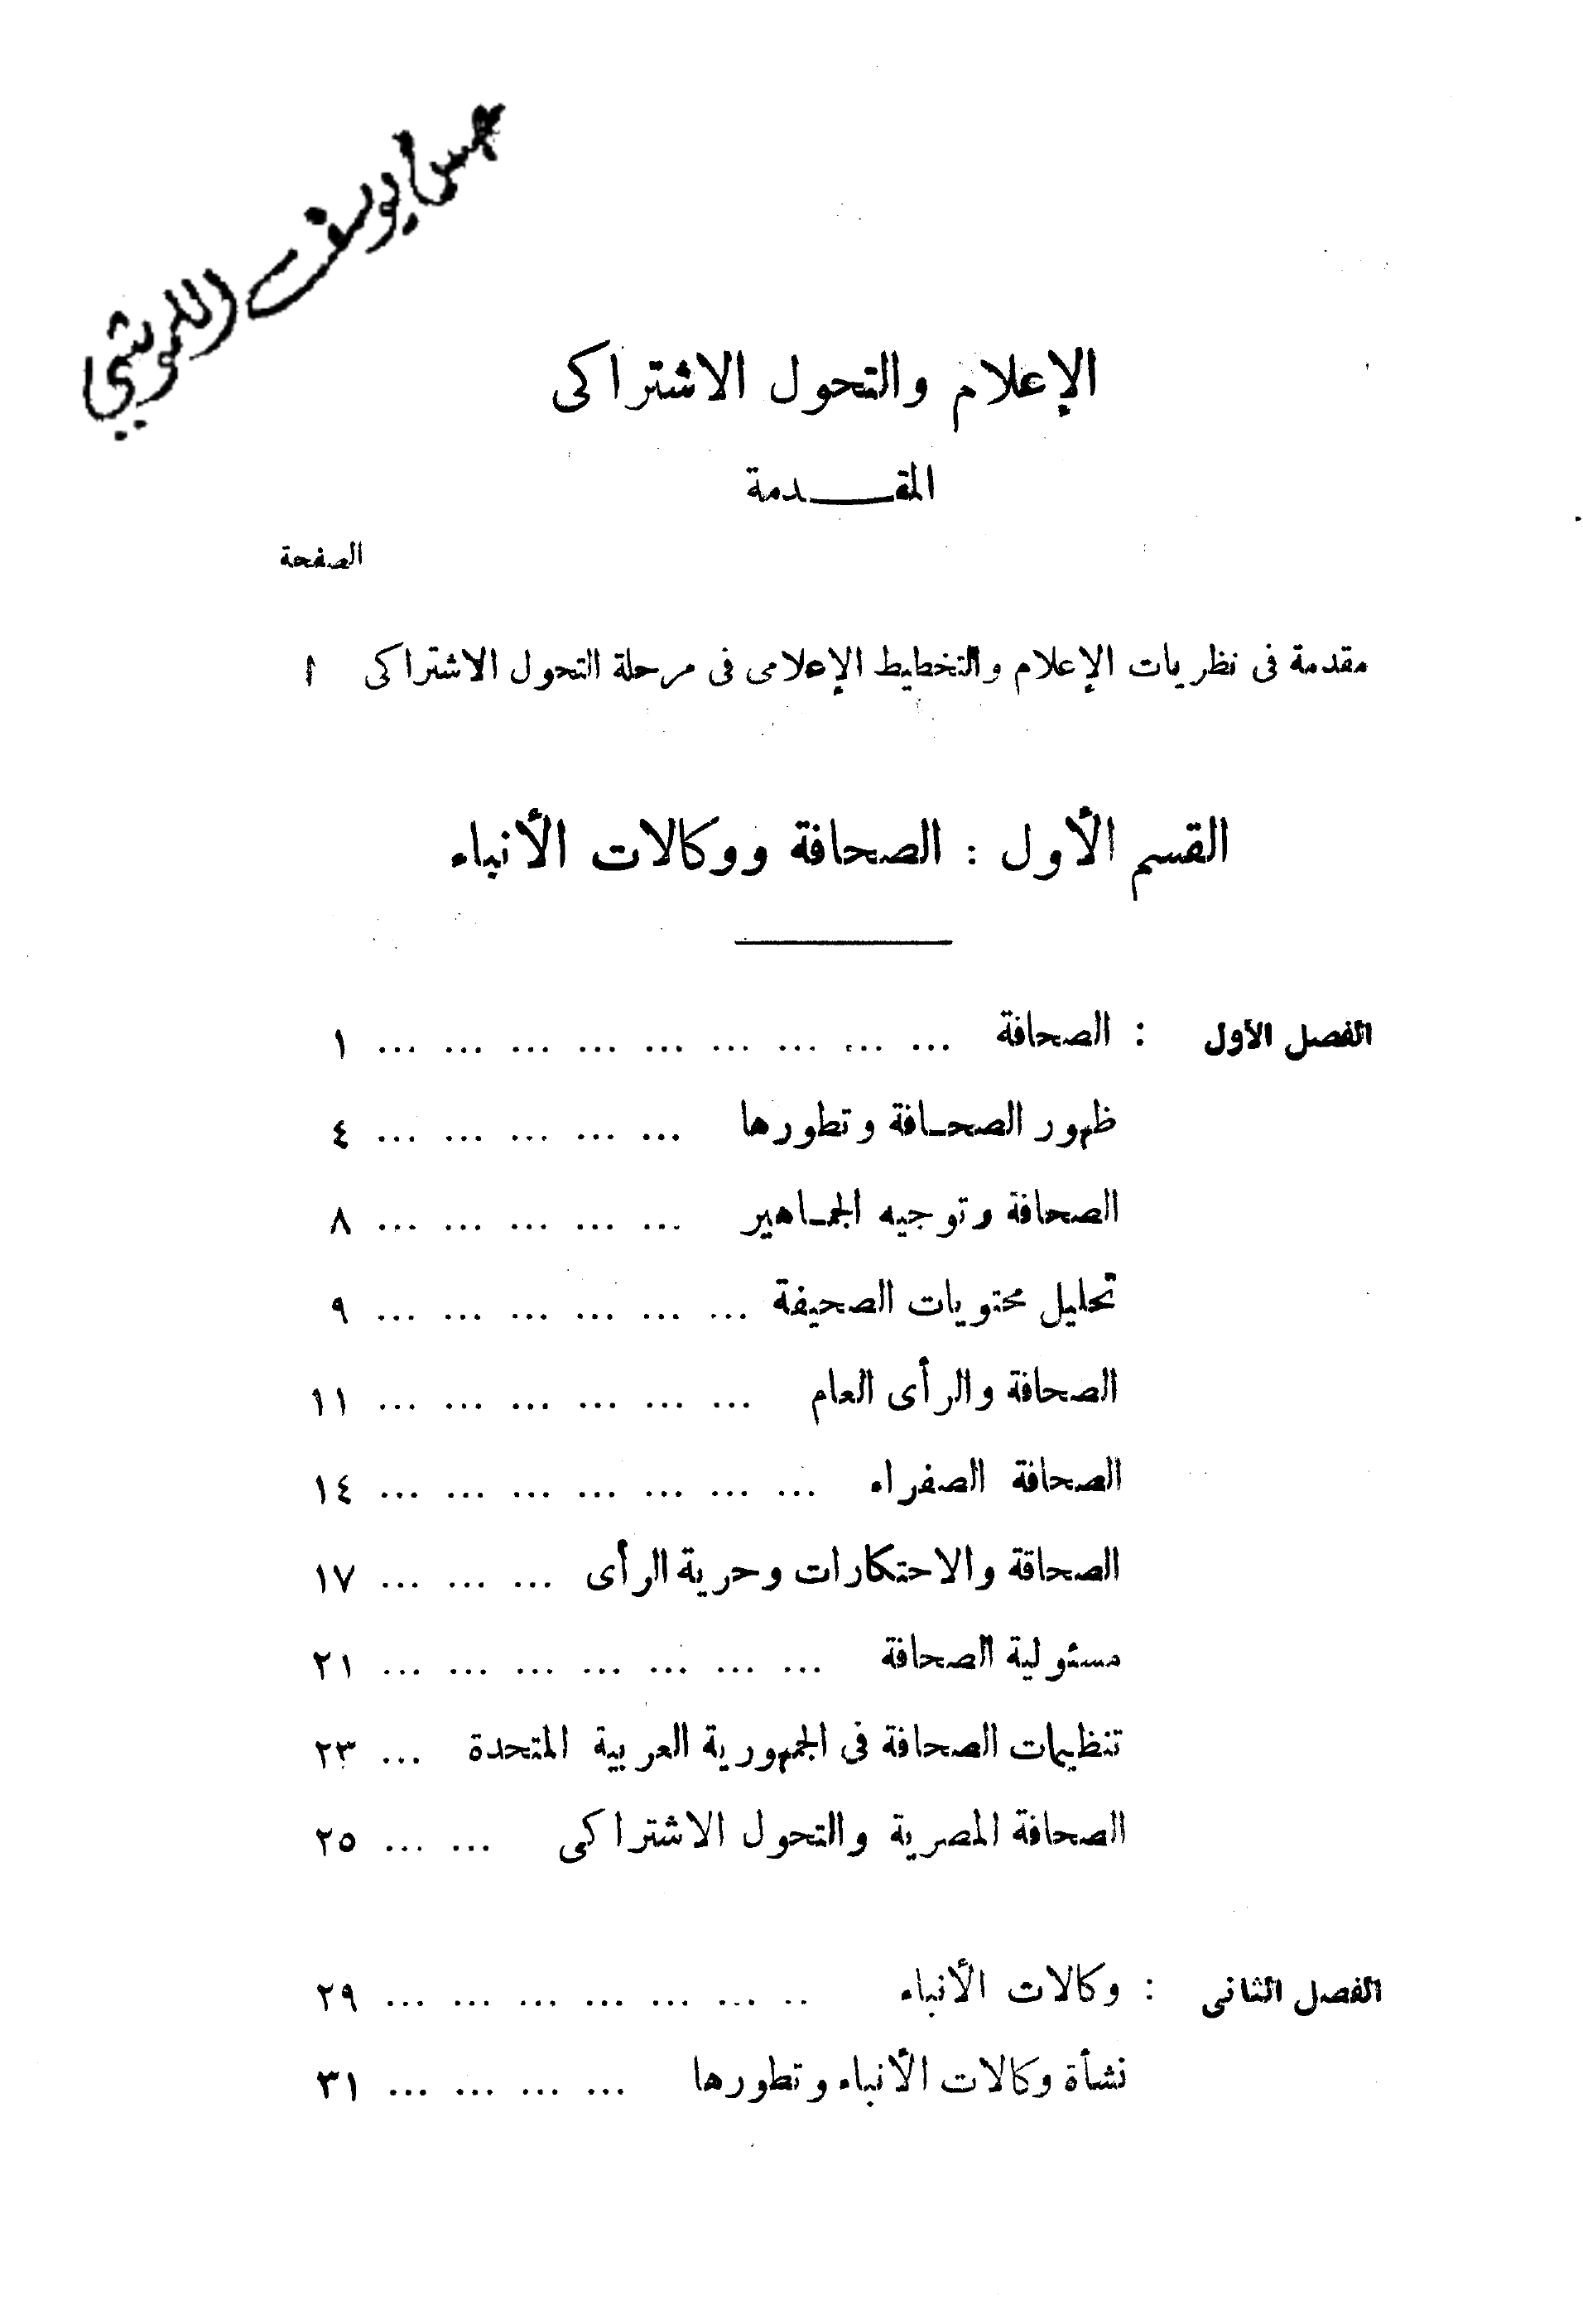 حسن يوسف اللموشي
الإعلام والتحول الاشتراكى
المقـــدمة
الصفحة
مقدمة فى نظريات الإعلام والتخطيط الإعلامى فى مرحلة التحول الاشتراكى ا
القسم الأول : الصحافة ووكالات الأنباء
الفصل الأول : الصحافة ... ... ... ... ... ... ... ... ... ١
ظهور الصحـافة وتطورها ... ... ... ... ... ٤
الصحافة وتوجيه الجمـاهير ... ... ... ... ... ٨
تحليل محتويات الصحيفة ... ... ... ... ... ... ٩
الصحافة والرأى العام ... ... ... ... ... ... ١١
الصحافة الصفراء ... ... ... ... ... ... ... ١٤
الصحافة والاحتكارات وحرية الرأى ... ... ... ١٧
مسئولية الصحافة ... ... ... ... ... ... ... ٢١
تنظيمات الصحافة فى الجمهورية العربية المتحدة ... ٢٣
الصحافة المصرية والتحول الاشتراكى ... ... ٢٥
الفصل الثانى : وكالات الأنباء .. ... ... ... ... ... ... ٢٩
نشأة وكالات الأنباء وتطورها ... ... ... ... ٣١